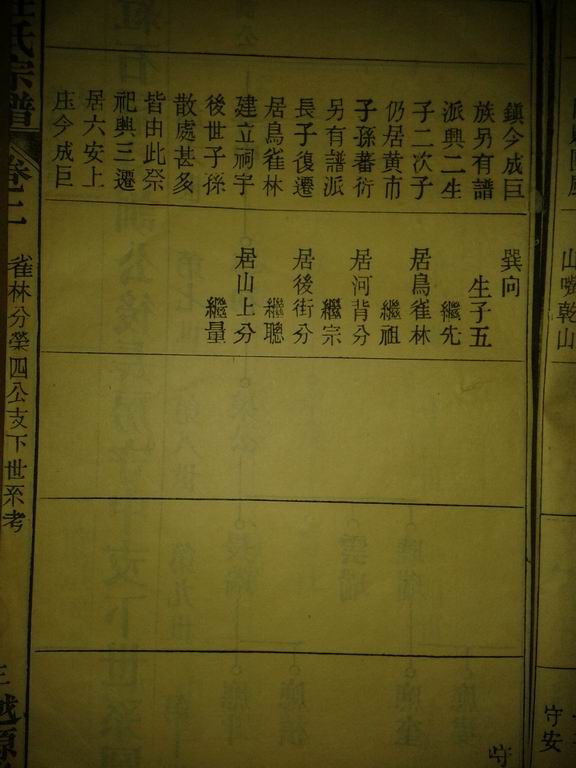 鎮今成巨
族另有譜
派興二生
子二次子
仍居黄市
子孫蕃衍
另有譜派
長子復遷
居鳥雀林
建立祠宇
後世子孫
散處甚多
皆由此祭
祀興三遷
居六安上
庒今成巨
巽向
生子五
繼先
居鳥雀林
繼祖
居河背分
繼宗
居後街分
繼聰
居山上分
繼量
守
氏宗譜
卷二
雀林分榮四公支下世系考
山嘴乾山
守安